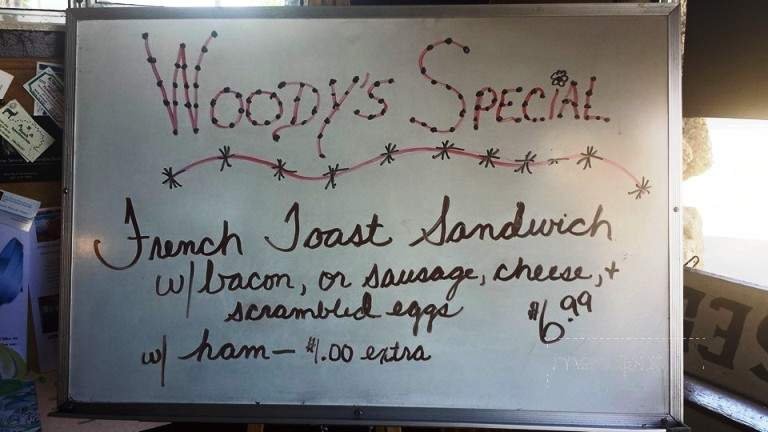 WOODY'S SPECIAL
French Toast Sandwich
w/ bacon, or sausage, cheese, +
scrambled eggs $6.99
w/ ham - $1.00 extra